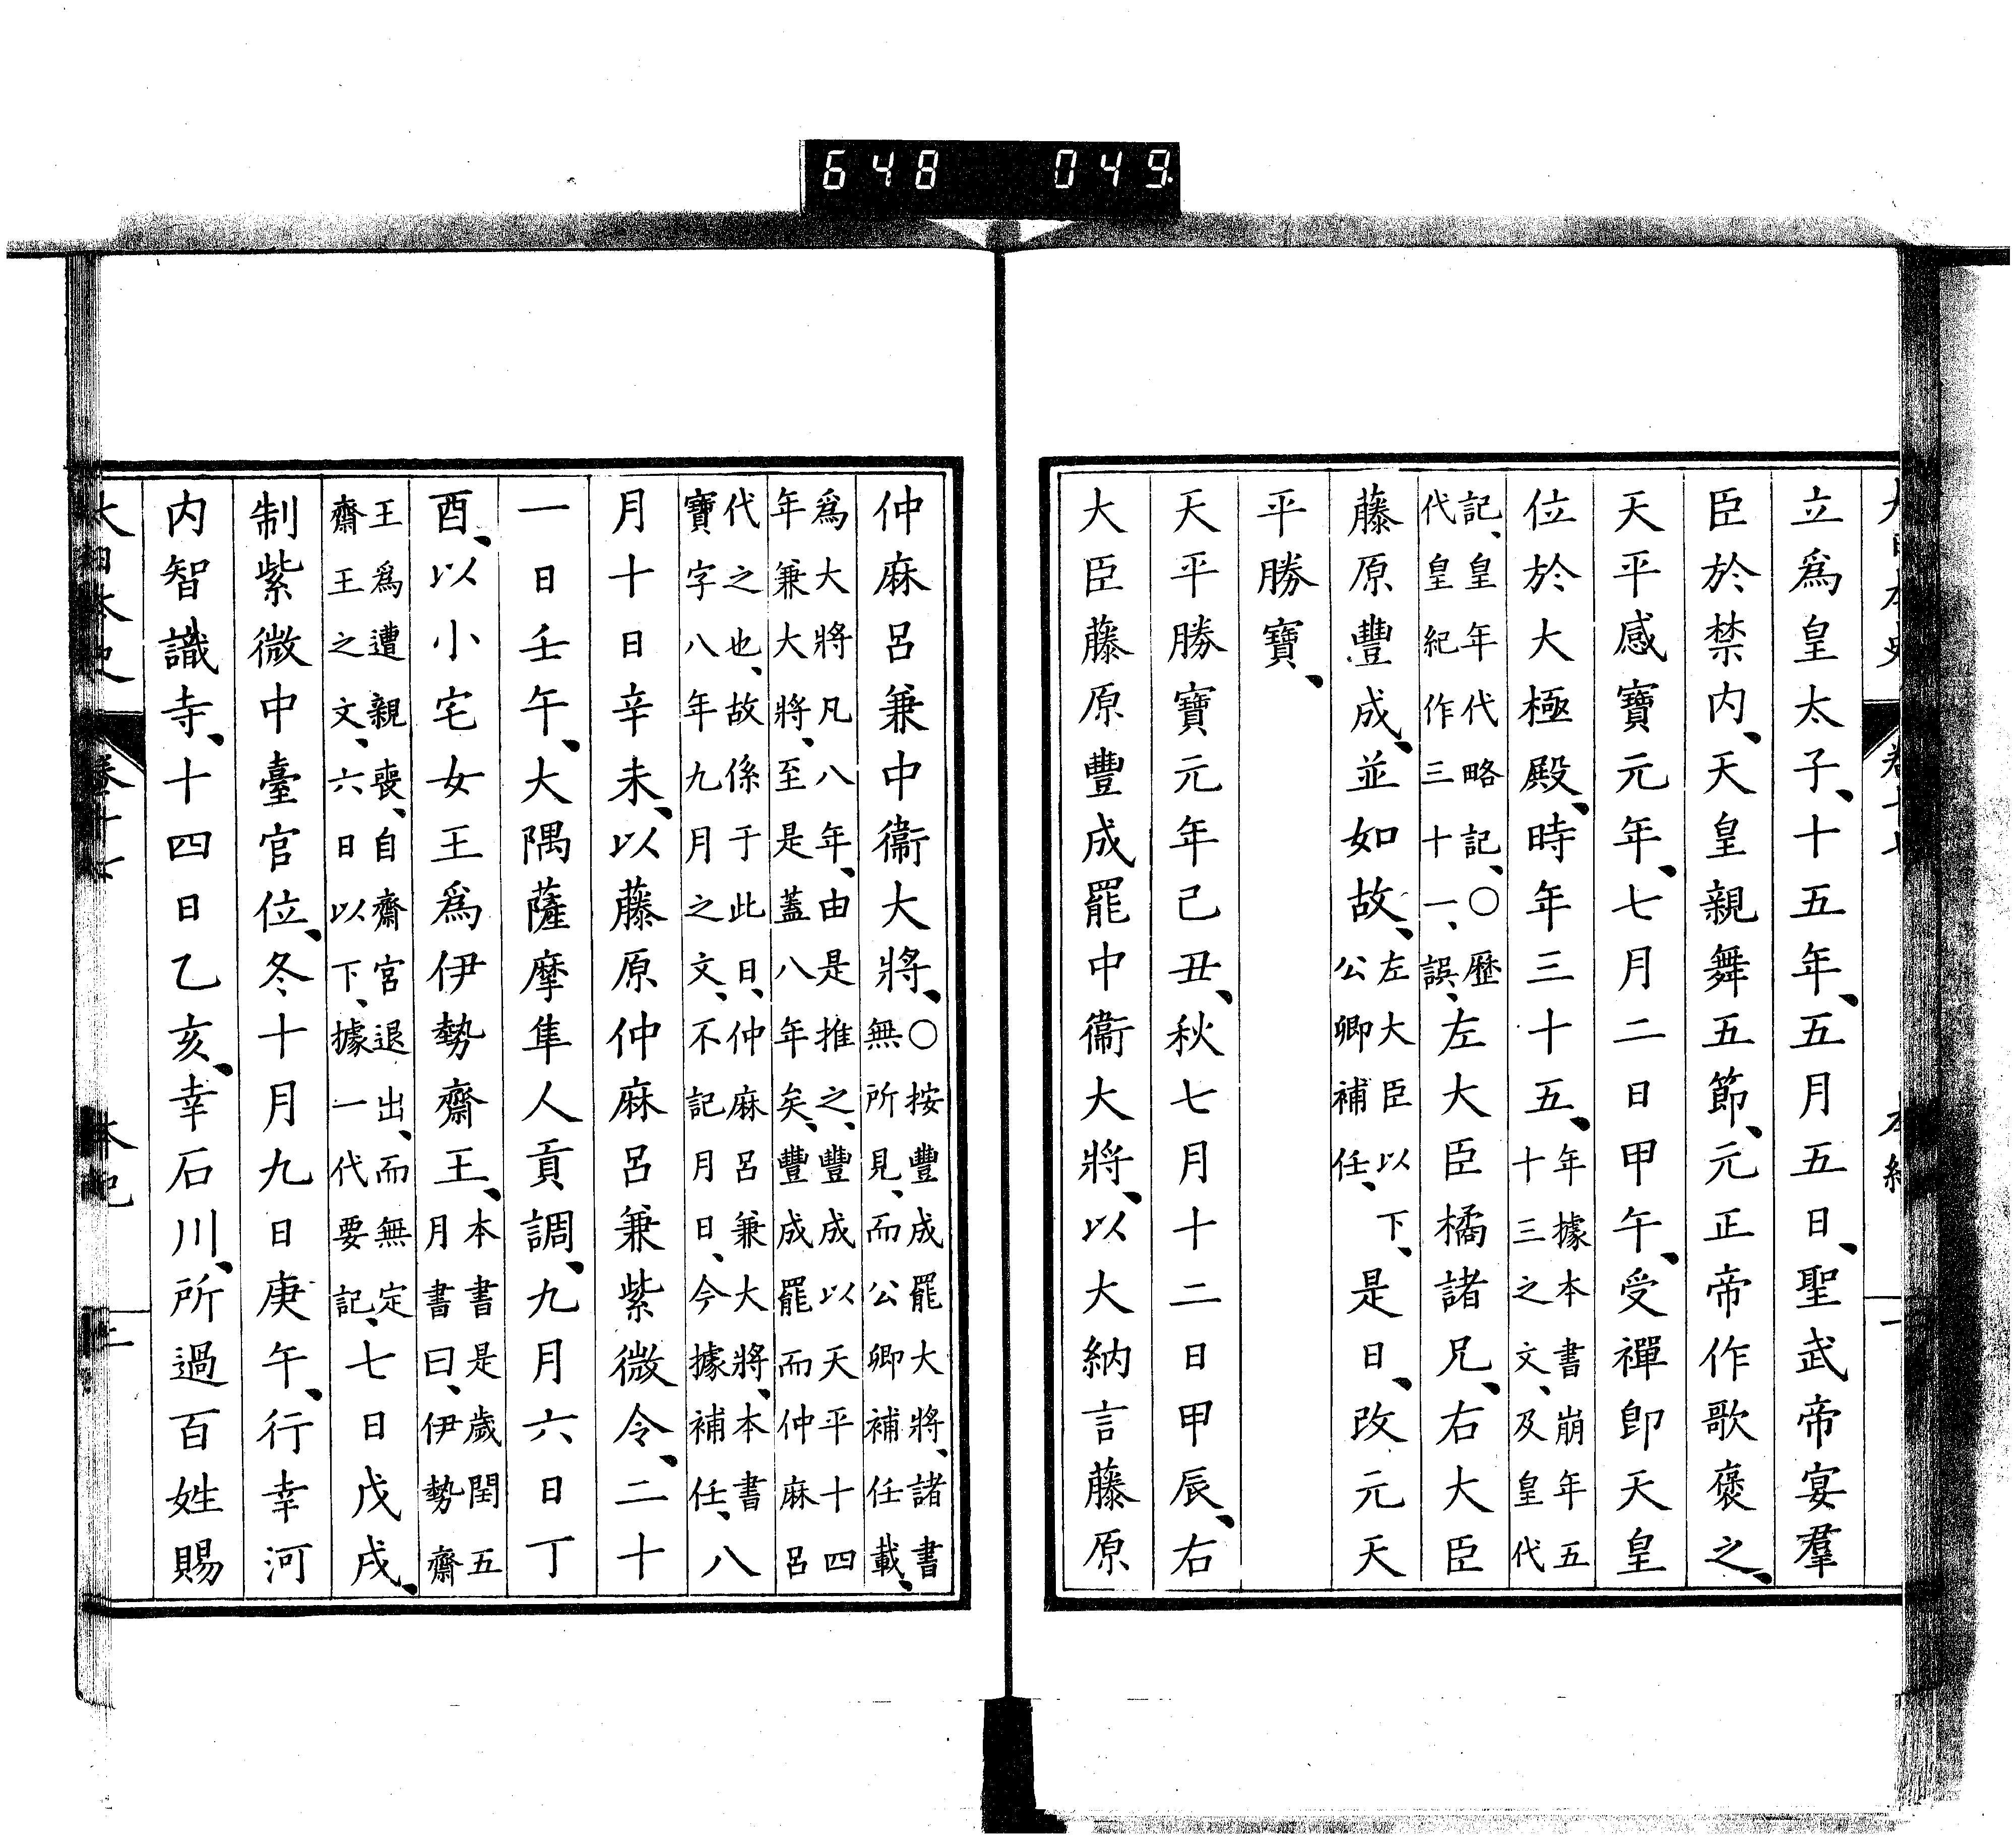 648 049
立爲皇太子、十五年、五月五日、聖武帝宴羣
臣於禁内、天皇親舞五節、元正帝作歌褒之、
天平感寶元年、七月二日甲午、受禪卽天皇
位於大極殿、時年三十五、年據本書崩年五
十三之文、及皇代
記、皇年代略記、○歷
代皇紀作三十一、誤、左大臣橘諸兄、右大臣
藤原豐成、並如故、左大臣以下、
公卿補任、是日、改元天
平勝寶、
天平勝寶元年己丑、秋七月十二日甲辰、右
大臣藤原豐成罷中衞大將、以大納言藤原
仲麻呂兼中衞大將、○按豐成罷大將、諸書
無所見、而公卿補任載、
爲大將凡八年、由是推之、豐成以天平十四
年兼大將、至是蓋八年矣、豐成罷而仲麻呂
代之也、故係于此日、仲麻呂兼大將、本書
寶字八年九月之文、不記月日、今據補任、八
月十日辛未、以藤原仲麻呂兼紫微令、二十
一日壬午、大隅薩摩隼人貢調、九月六日丁
酉、以小宅女王爲伊勢齋王、本書是歲閏五
月書曰、伊勢齋
王爲遭親喪、自齋宮退出、而無定
齋王之文、六日以下、據一代要記、七日戊戌、
制紫微中臺官位、冬十月九日庚午、行幸河
内智識寺、十四日乙亥、幸石川、所過百姓賜